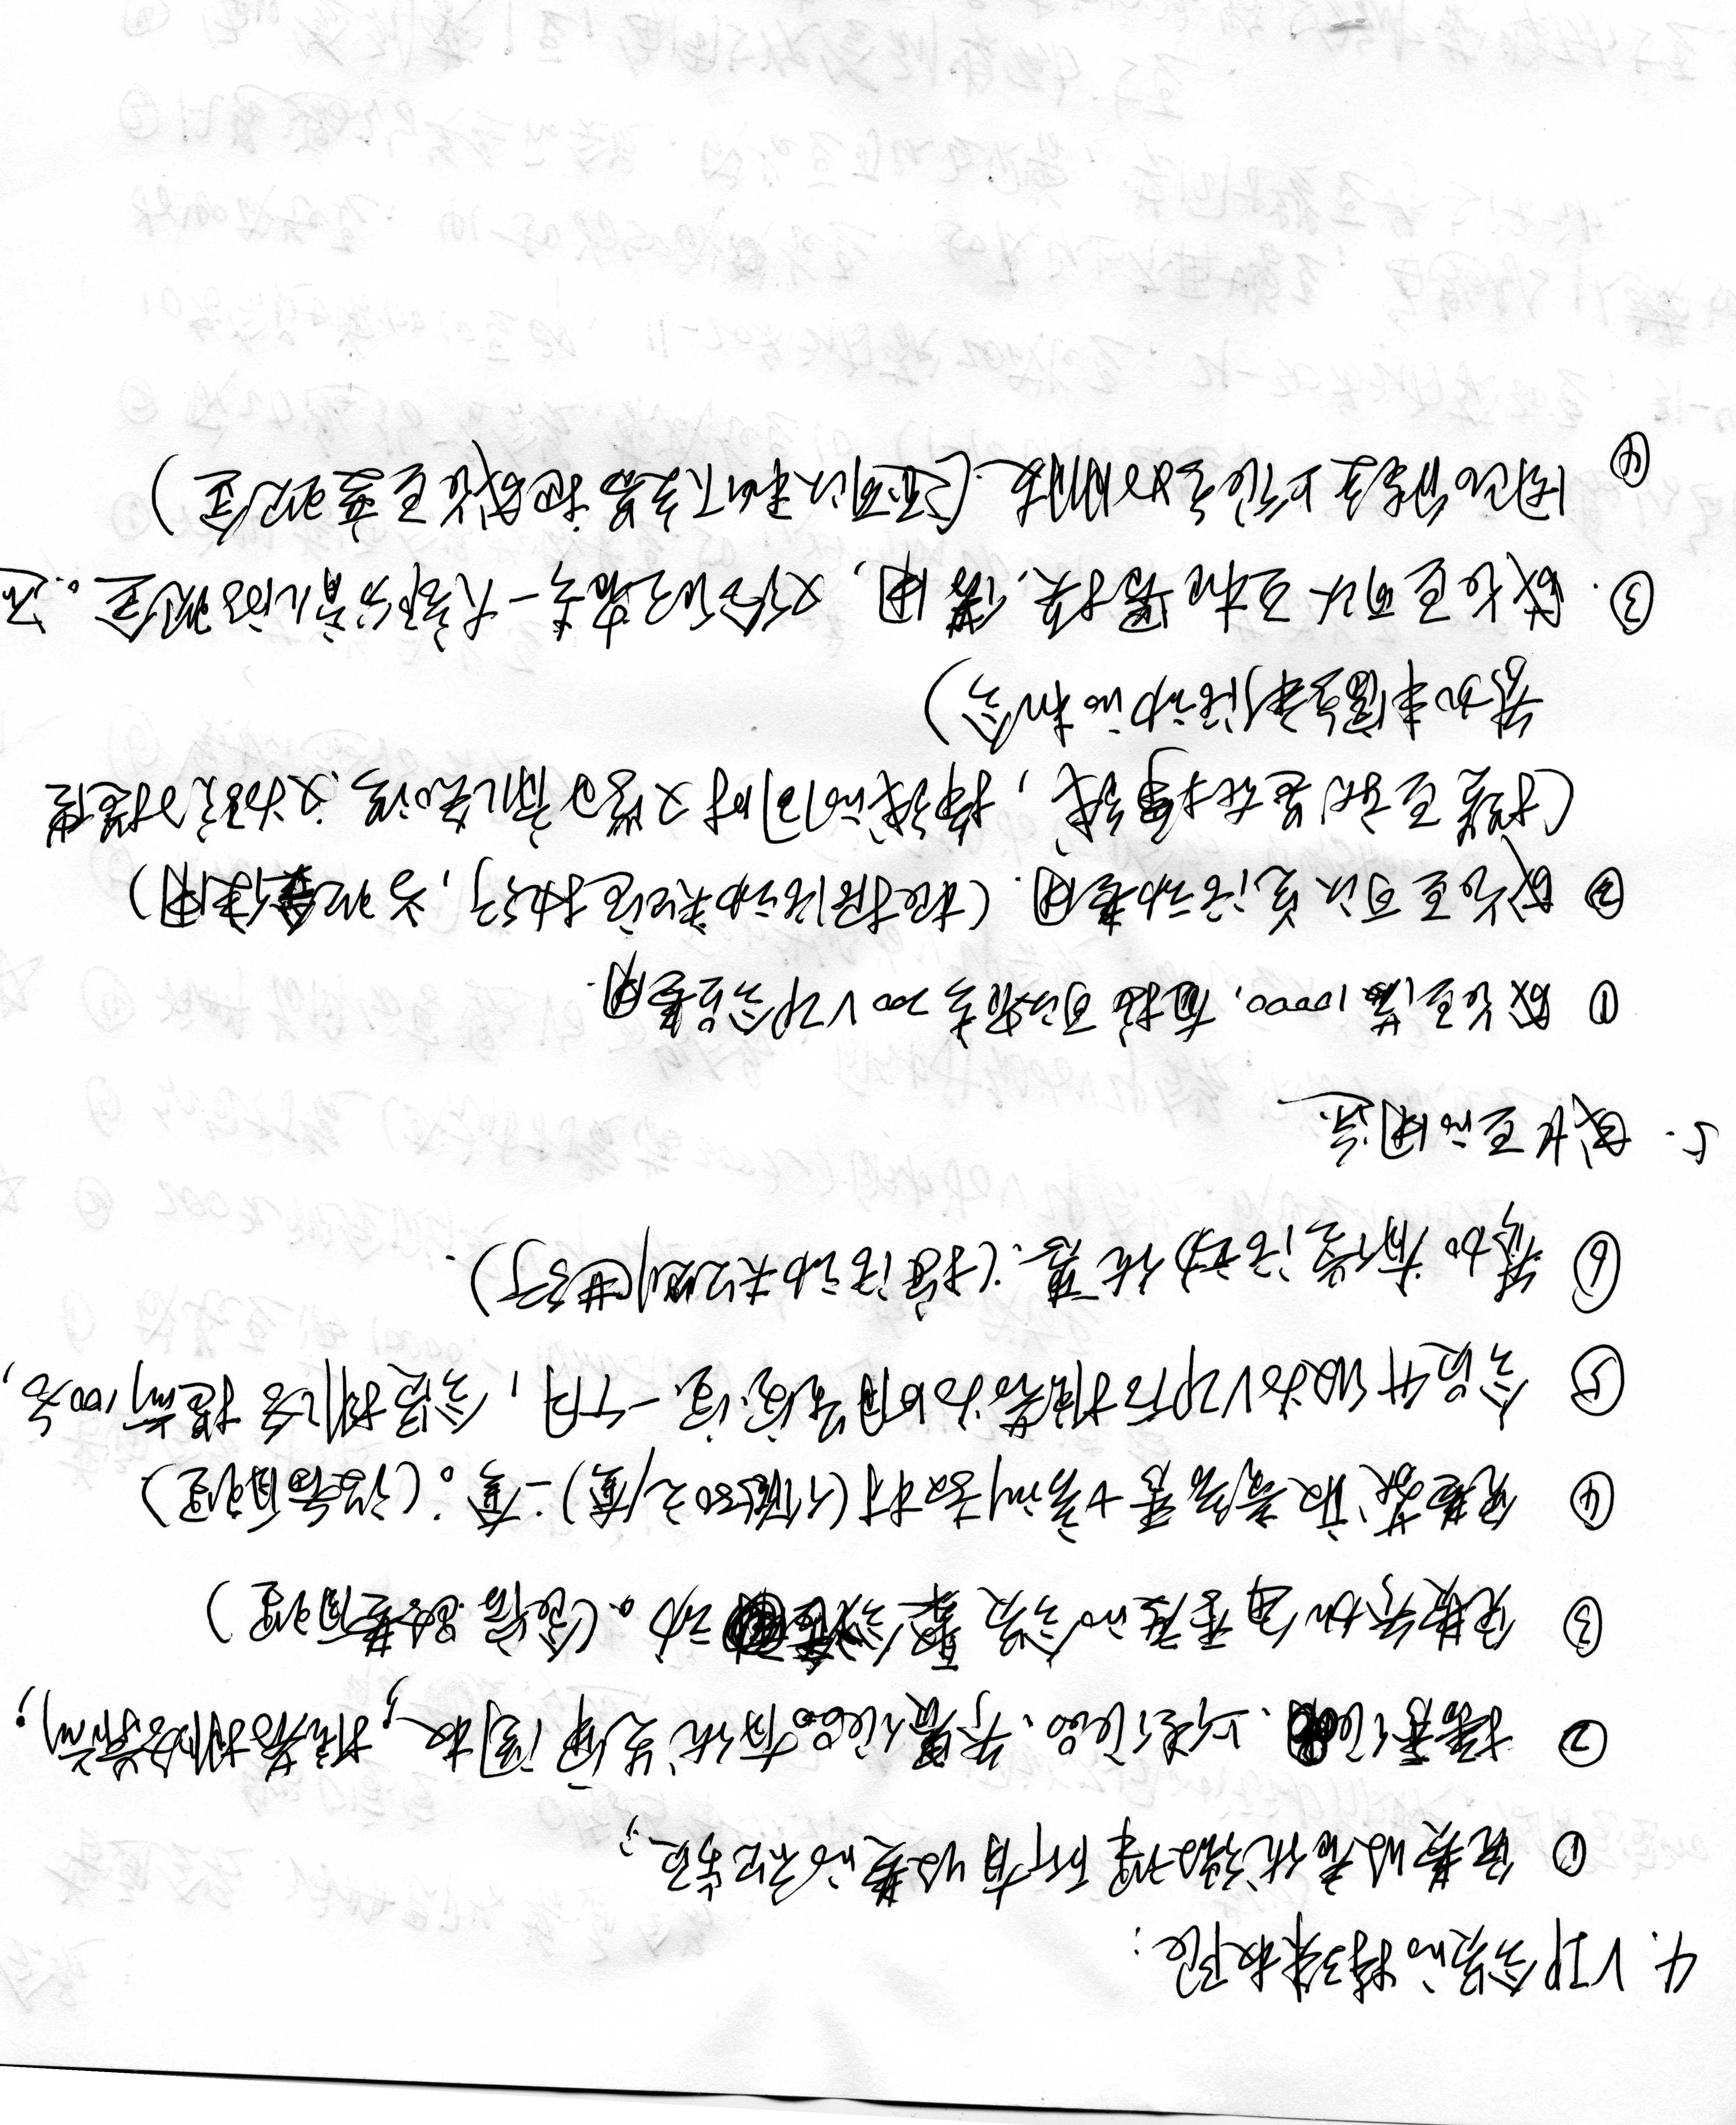 4. VIP会员的特殊权限:
① 免费收看优微课所有收费的视频;
② 播秀作品、上传作品、参赛作品有优先审阅权,推荐排名靠前;
③ 免费参加每季度的会员聚会活动。(食宿路费自理)
④ 免费获取童音秀培训教材(价值580元/套)一套。(设备自理)
⑤ 会员升级为VIP后推荐为明星宝宝一个月,会员排名提前100名,
⑥ 参加有偿活动优惠.(按活动规则进行).
5. 成长豆的用途
① 成长豆满10000,直接可以省去200VIP会员费用.
② 成长豆可以兑活动费用.(根据活动规定执行,当现金使用)
(攒豆就是在挣钱,挣钱的同时又学习育儿知识、又为孩子提供
参加丰富多彩活动的机会)
③. 成长豆可以互相置换.借用,又给你省去一大部分育儿的现金。还
④ 因此能交上很多好朋友.(还可以私下交易把成长豆变现金)